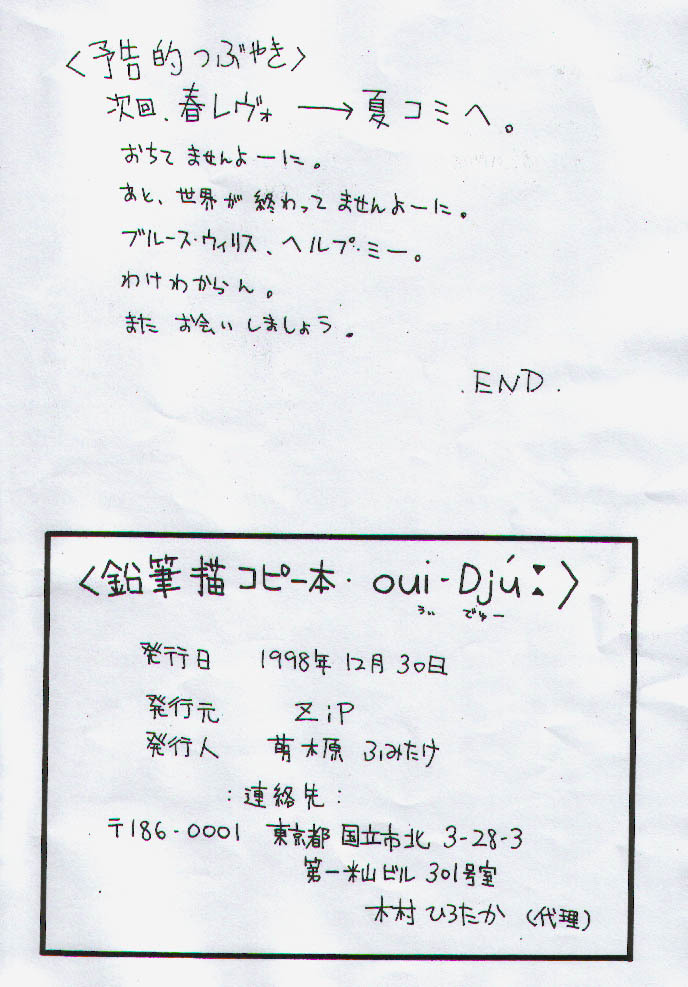 〈予告的つぶやき〉
次回、春レヴォ ⟶ 夏コミへ。
おちてませんよーに。
あと、世界が終わってませんよーに。
ブルース・ウィリス、ヘルプ・ミー。
わけわからん。
またお会いしましょう。
.END.
〈鉛筆描コピー本・oui-Djú:〉
うぃ でゅー
発行日 1998年12月30日
発行元 ZiP
発行人 萠木原ふみたけ
:連絡先:
〒186-0001 東京都国立市北3-28-3
第一米山ビル301号室
木村ひろたか(代理)